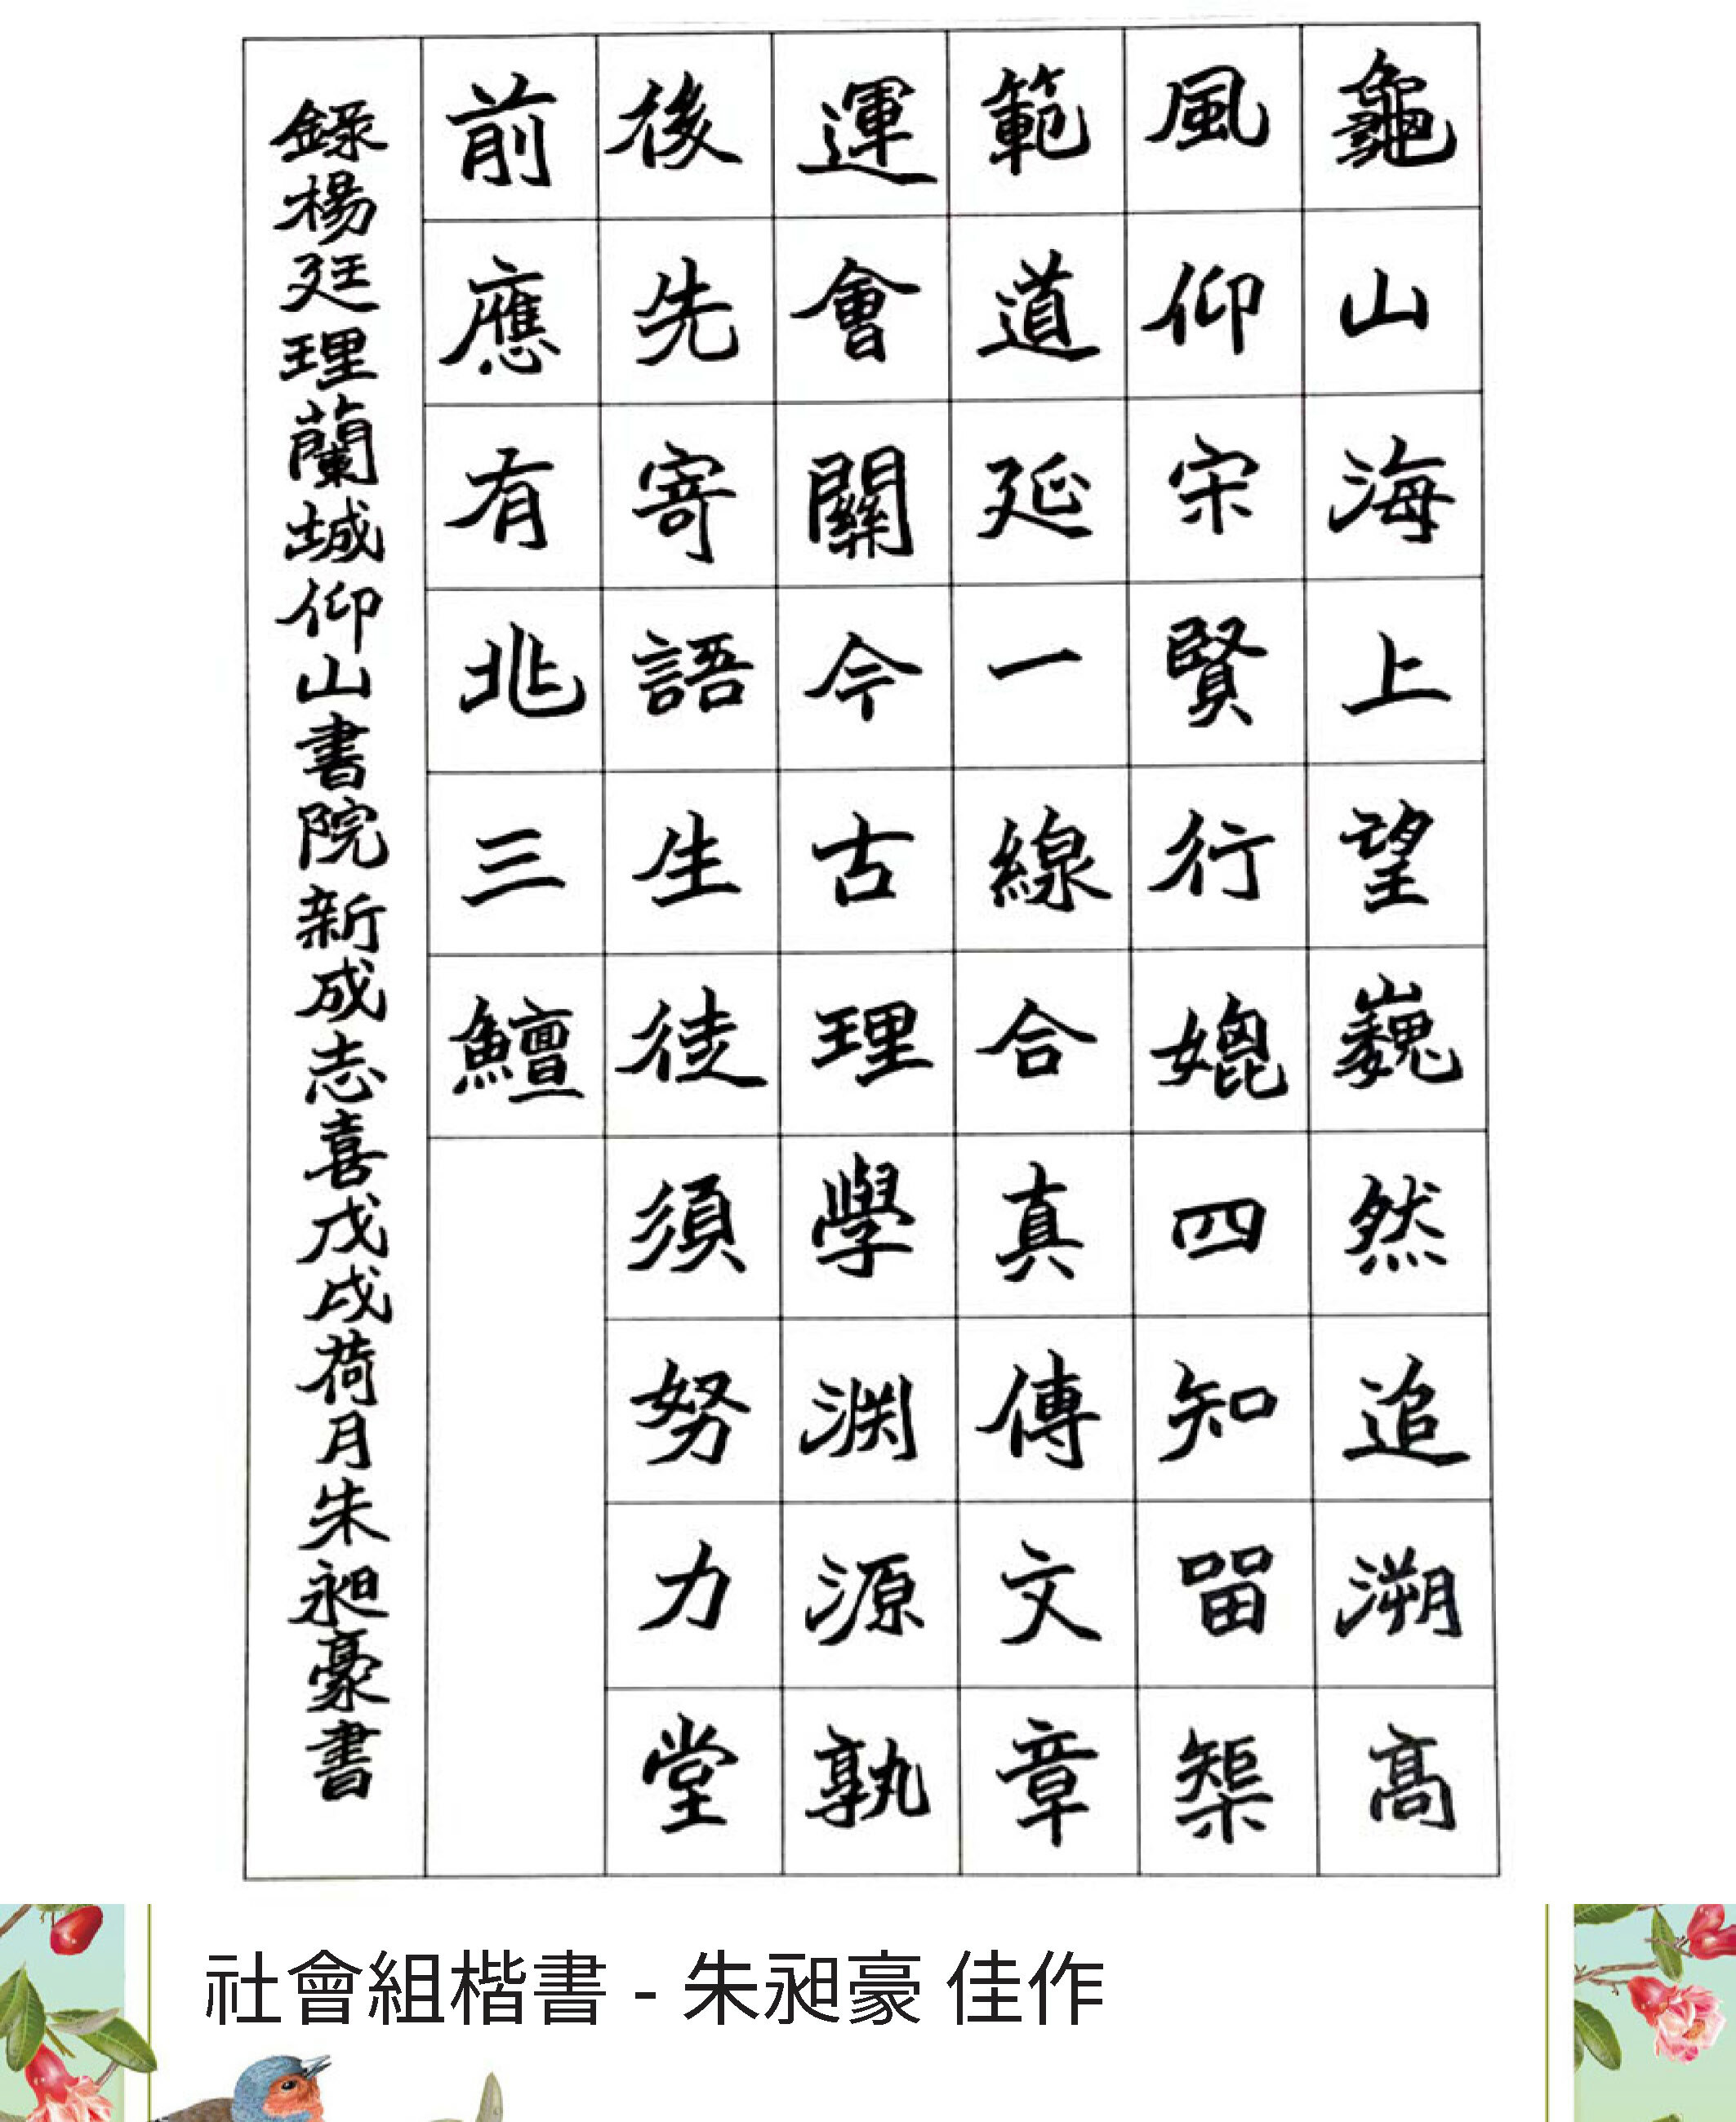 龜山海上望巍然追溯高
風仰宋賢行媲四知留榘
範道延一線合真傳文章
運會關今古理學淵源孰
後先寄語生徒須努力堂
前應有兆三鱣
錄楊廷理蘭城仰山書院新成志喜戊戌荷月朱昶豪書
社會組楷書 - 朱昶豪 佳作